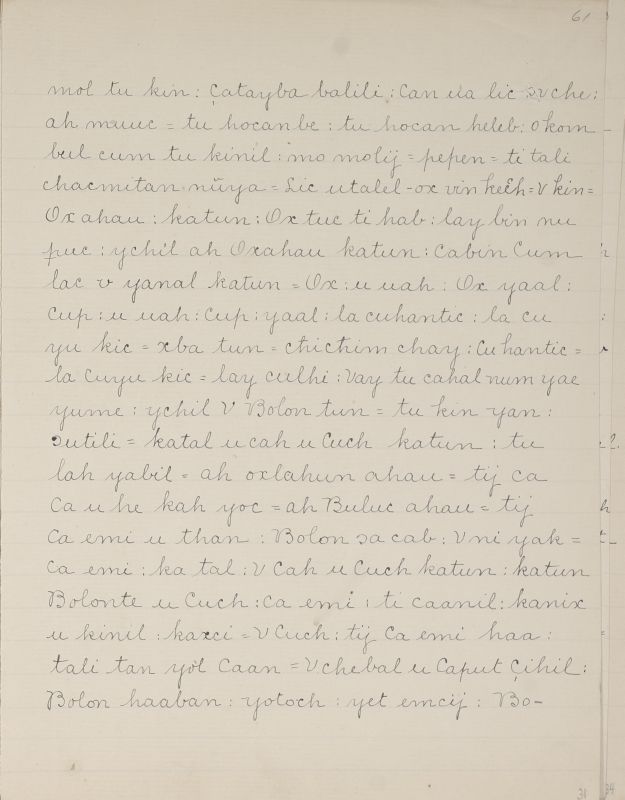 61
mol tu kin : çatayba balili : Can ua lic ɔv che :
ah mauuc = tu hocanbe : tu hocan heleb : okom
bul cum tu kinil : mo molij = pepen = ti tali
chacmitan nuya = Lic utalel - ox vin keeh = v kin =
Ox ahau : katun : Ox tuc ti hab : lay bin nu
puc : ychil ah Oxahau katun : Cabin Cum
lac v yanal katun = Ox : u uah : Ox yaal :
Cup : u uah : Cup : yaal : la cuhantic : la cu
yu kic = xba tun = chichim chay : Cu hantic =
la Cuyu kic = lay culhi : Vay tu cahal num yae
yume : ychil V Bolon tun = tu kin yan :
ɔutili = katal u cah u Cuch katun : tu
lah yabil = ah oxlahun ahau = tij ca
Ca u he kah yoc = ah Buluc ahau = tij
Ca emi u than : Bolon ɔa cab : V ni yak =
Ca emi : ka tal : V Cah u Cuch katun : katun
Bolonte u Cuch : Ca emi : ti caanil : kanix
u kinil : kaxci = V Cuch : tij Ca emi haa :
tali tan yol Caan = V chebal u Caput Çihil :
Bolon haaban : yotoch : yet emcij : Bo-
31
34